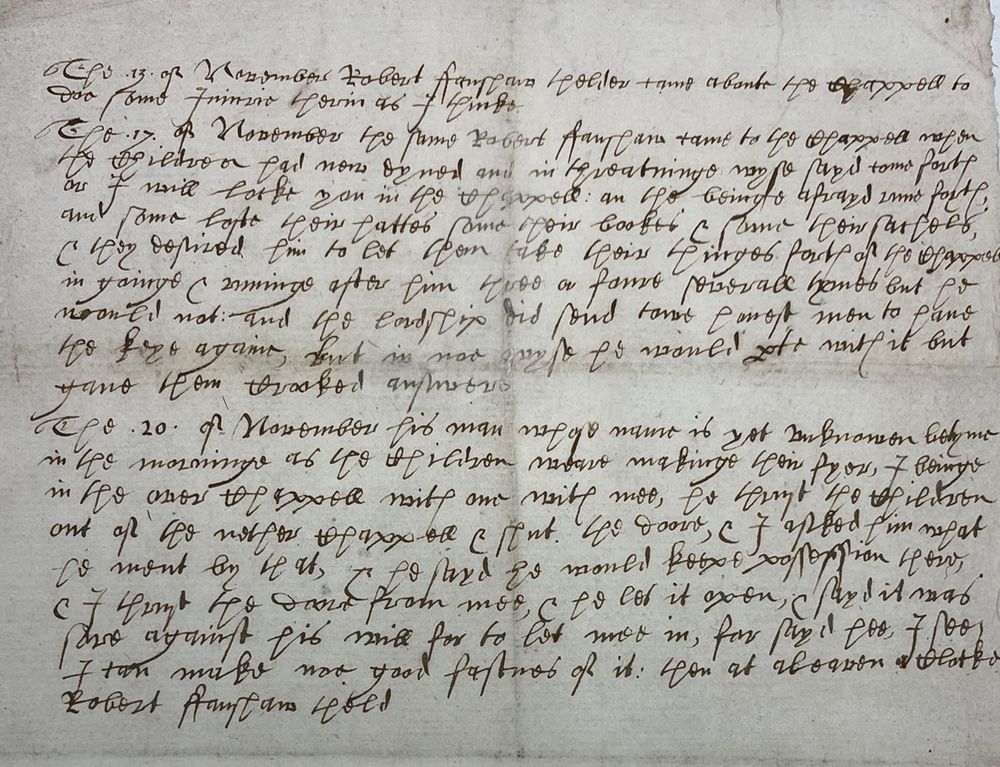 The .13. of November Robert ffanshaw thelder came aboute the Chappell to
doe some Iniurie therin as I thinke
The .17. of November the same Robert ffanshaw came to the Chappell when
the Children had new dyned and in threatninge wyse sayd come forth
or I will locke you in the Chappell: an the beinge afrayd runne forth,
and some loste their hattes some their bookes & some their sachels,
& they desired him to let them take their thinges forth of the Chappell
in goinge & runinge after him three or foure severall tymes but he
would not: and the lordship did send towe honest men to have
the keye againe, But in noe wyse he would pte with it but
gave them Crooked answers
The .20. of November his man whose name is yet unknowen betyme
in the morninge as the Children weare makinge their fyer, I beinge
in the over Chappell with one with mee, he thrust the Children
out of the nether Chappell & shut the doore, & I asked him what
he ment by that, & he sayd he would keepe possession there,
& I thrust the doore from mee, & he let it open, & sayd it was
sore against his will for to let mee in, for sayd hee, I see
I can make noe good fastnes of it: then at aleaven a Clocke
Robert ffanshaw theld